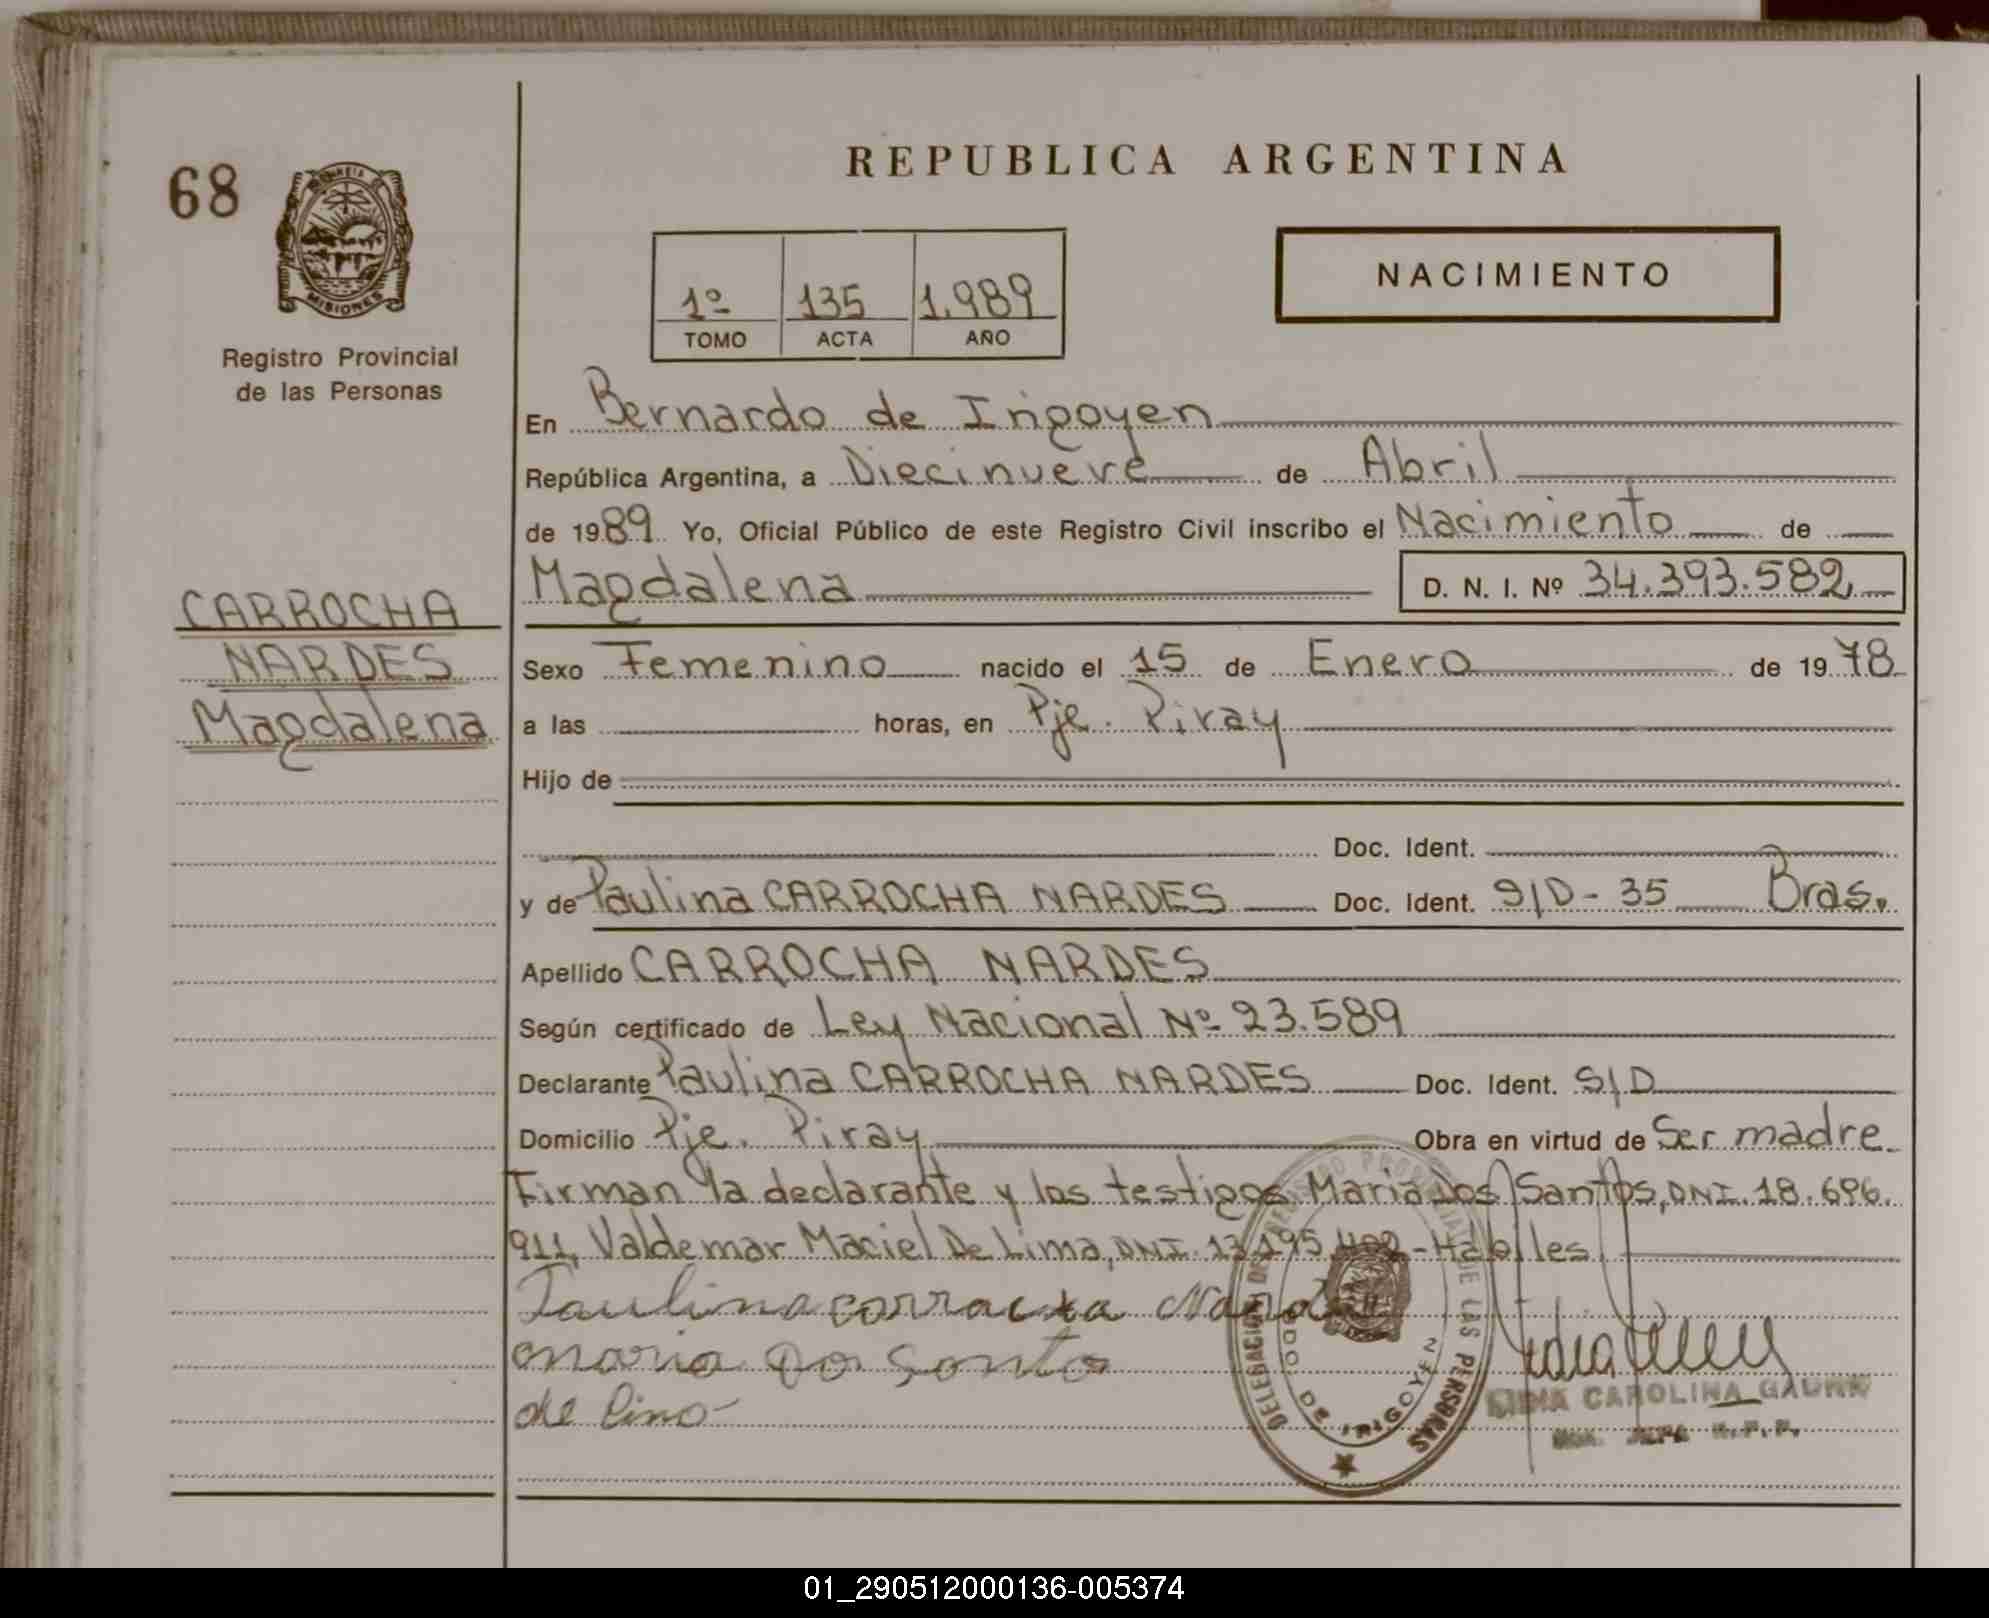 68
MISIONES
Registro Provincial
de las Personas
CARROCHA
NARDES
Magdalena
REPUBLICA ARGENTINA
1º 135 1.989
TOMO ACTA AÑO
NACIMIENTO
En Bernardo de Irigoyen
República Argentina, a Diecinueve de Abril
de 1989 Yo, Oficial Público de este Registro Civil inscribo el Nacimiento de
Magdalena D. N. I. Nº 34.393.582
Sexo Femenino nacido el 15 de Enero de 1978
a las horas, en Pje. Piray
Hijo de
Doc. Ident.
y de Paulina CARROCHA NARDES Doc. Ident. S/D - 35 Bras.
Apellido CARROCHA NARDES
Según certificado de Ley Nacional Nº 23.589
Declarante Paulina CARROCHA NARDES Doc. Ident. S/D
Domicilio Pje. Piray Obra en virtud de Ser madre.
Firman la declarante y los testigos Maria dos Santos, DNI. 18.696.
911, Valdemar Maciel De Lima, DNI. 13.195. - Habiles
Paulina carrocha
maria do santos
de lima
DELEGACION DE REGISTRO PROVINCIAL DE LAS PERSONAS
DE IRIGOYEN
CAROLINA
JEFA R.P.P.
01_290512000136-005374